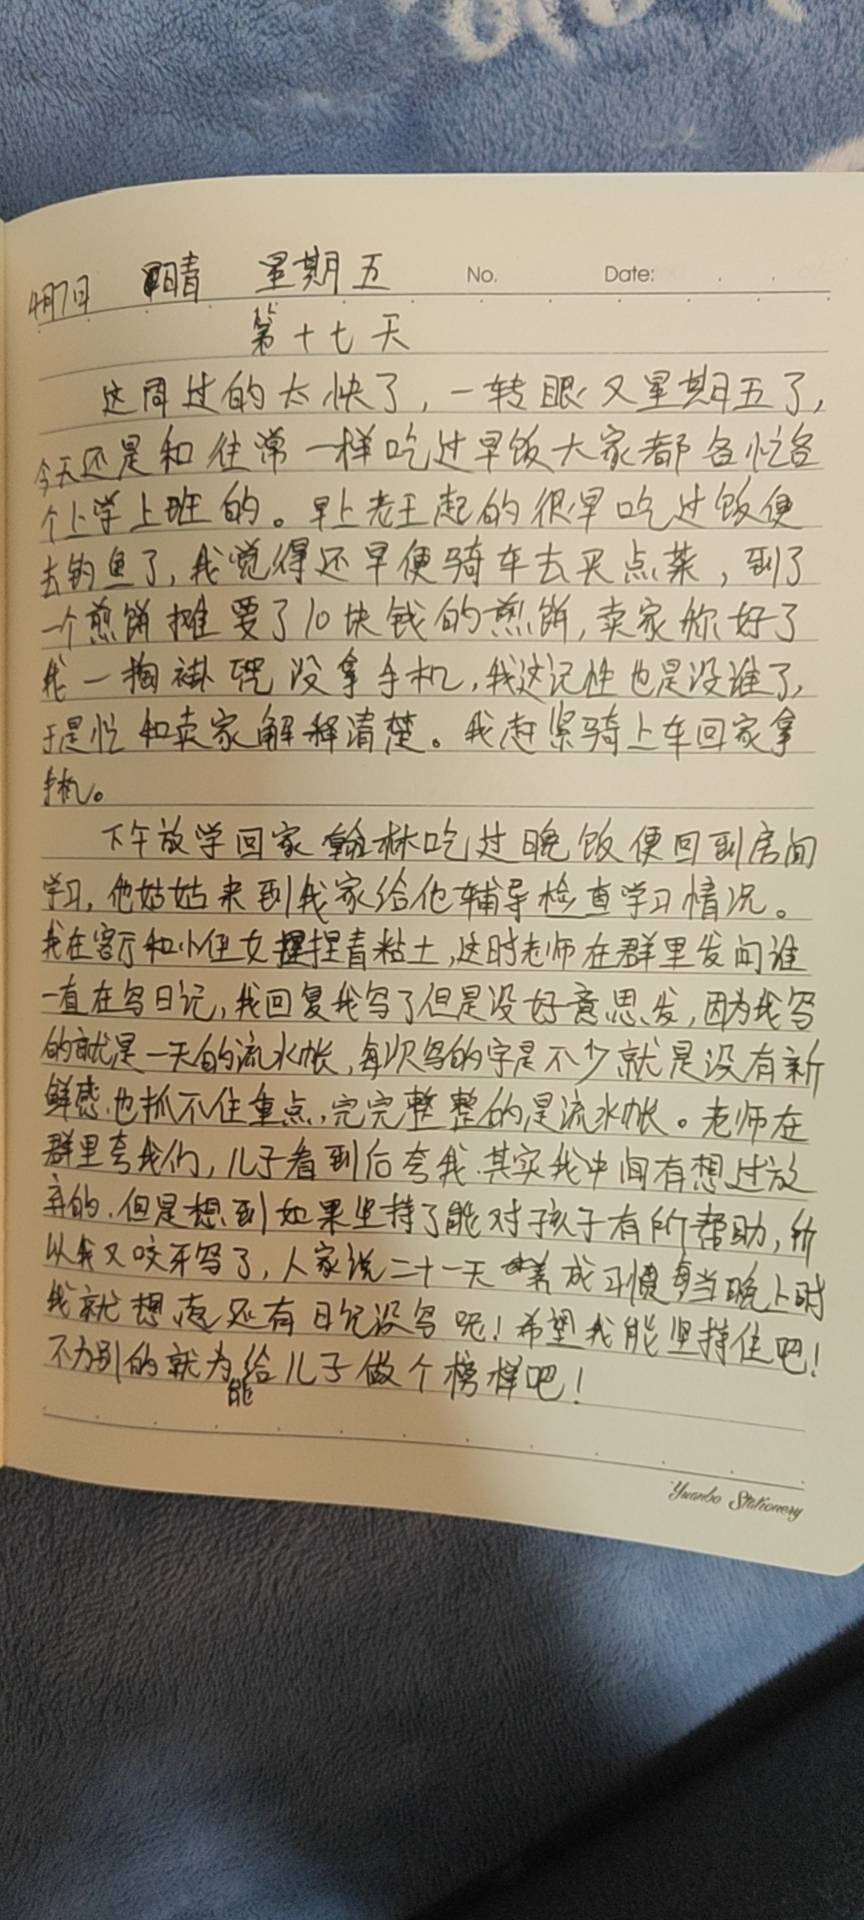 4月7日 晴 星期五 No. Date:
第十七天
这周过的太快了，一转眼又星期五了，
今天还是和往常一样吃过早饭大家都各忙各
个上学上班的。早上老王起的很早吃过饭便
去钓鱼了，我觉得还早便骑车去买点菜，到了
一个煎饼摊要了10块钱的煎饼，卖家做好了
我一掏裤兜没拿手机，我这记性也是没谁了，
于是忙和卖家解释清楚。我赶紧骑上车回家拿
手机。
下午放学回家翰林吃过晚饭便回到房间
学习，他姑姑来到我家给他辅导检查学习情况。
我在客厅和小侄女捏青粘土，这时老师在群里发问谁
一直在写日记，我回复我写了但是没好意思发，因为我写
的就是一天的流水帐，每次写的字是不少就是没有新
鲜感，也抓不住重点，完完整整的是流水帐。老师在
群里夸我们，儿子看到后夸我，其实我中间有想过放
弃的，但是想到如果坚持了能对孩子有所帮助，所
以我又咬牙写了，人家说二十一天养成习惯每当晚上时
我就想起还有日记没写呢！希望我能坚持住吧！
不为别的就为能给儿子做个榜样吧！
Yuanbo Stationery